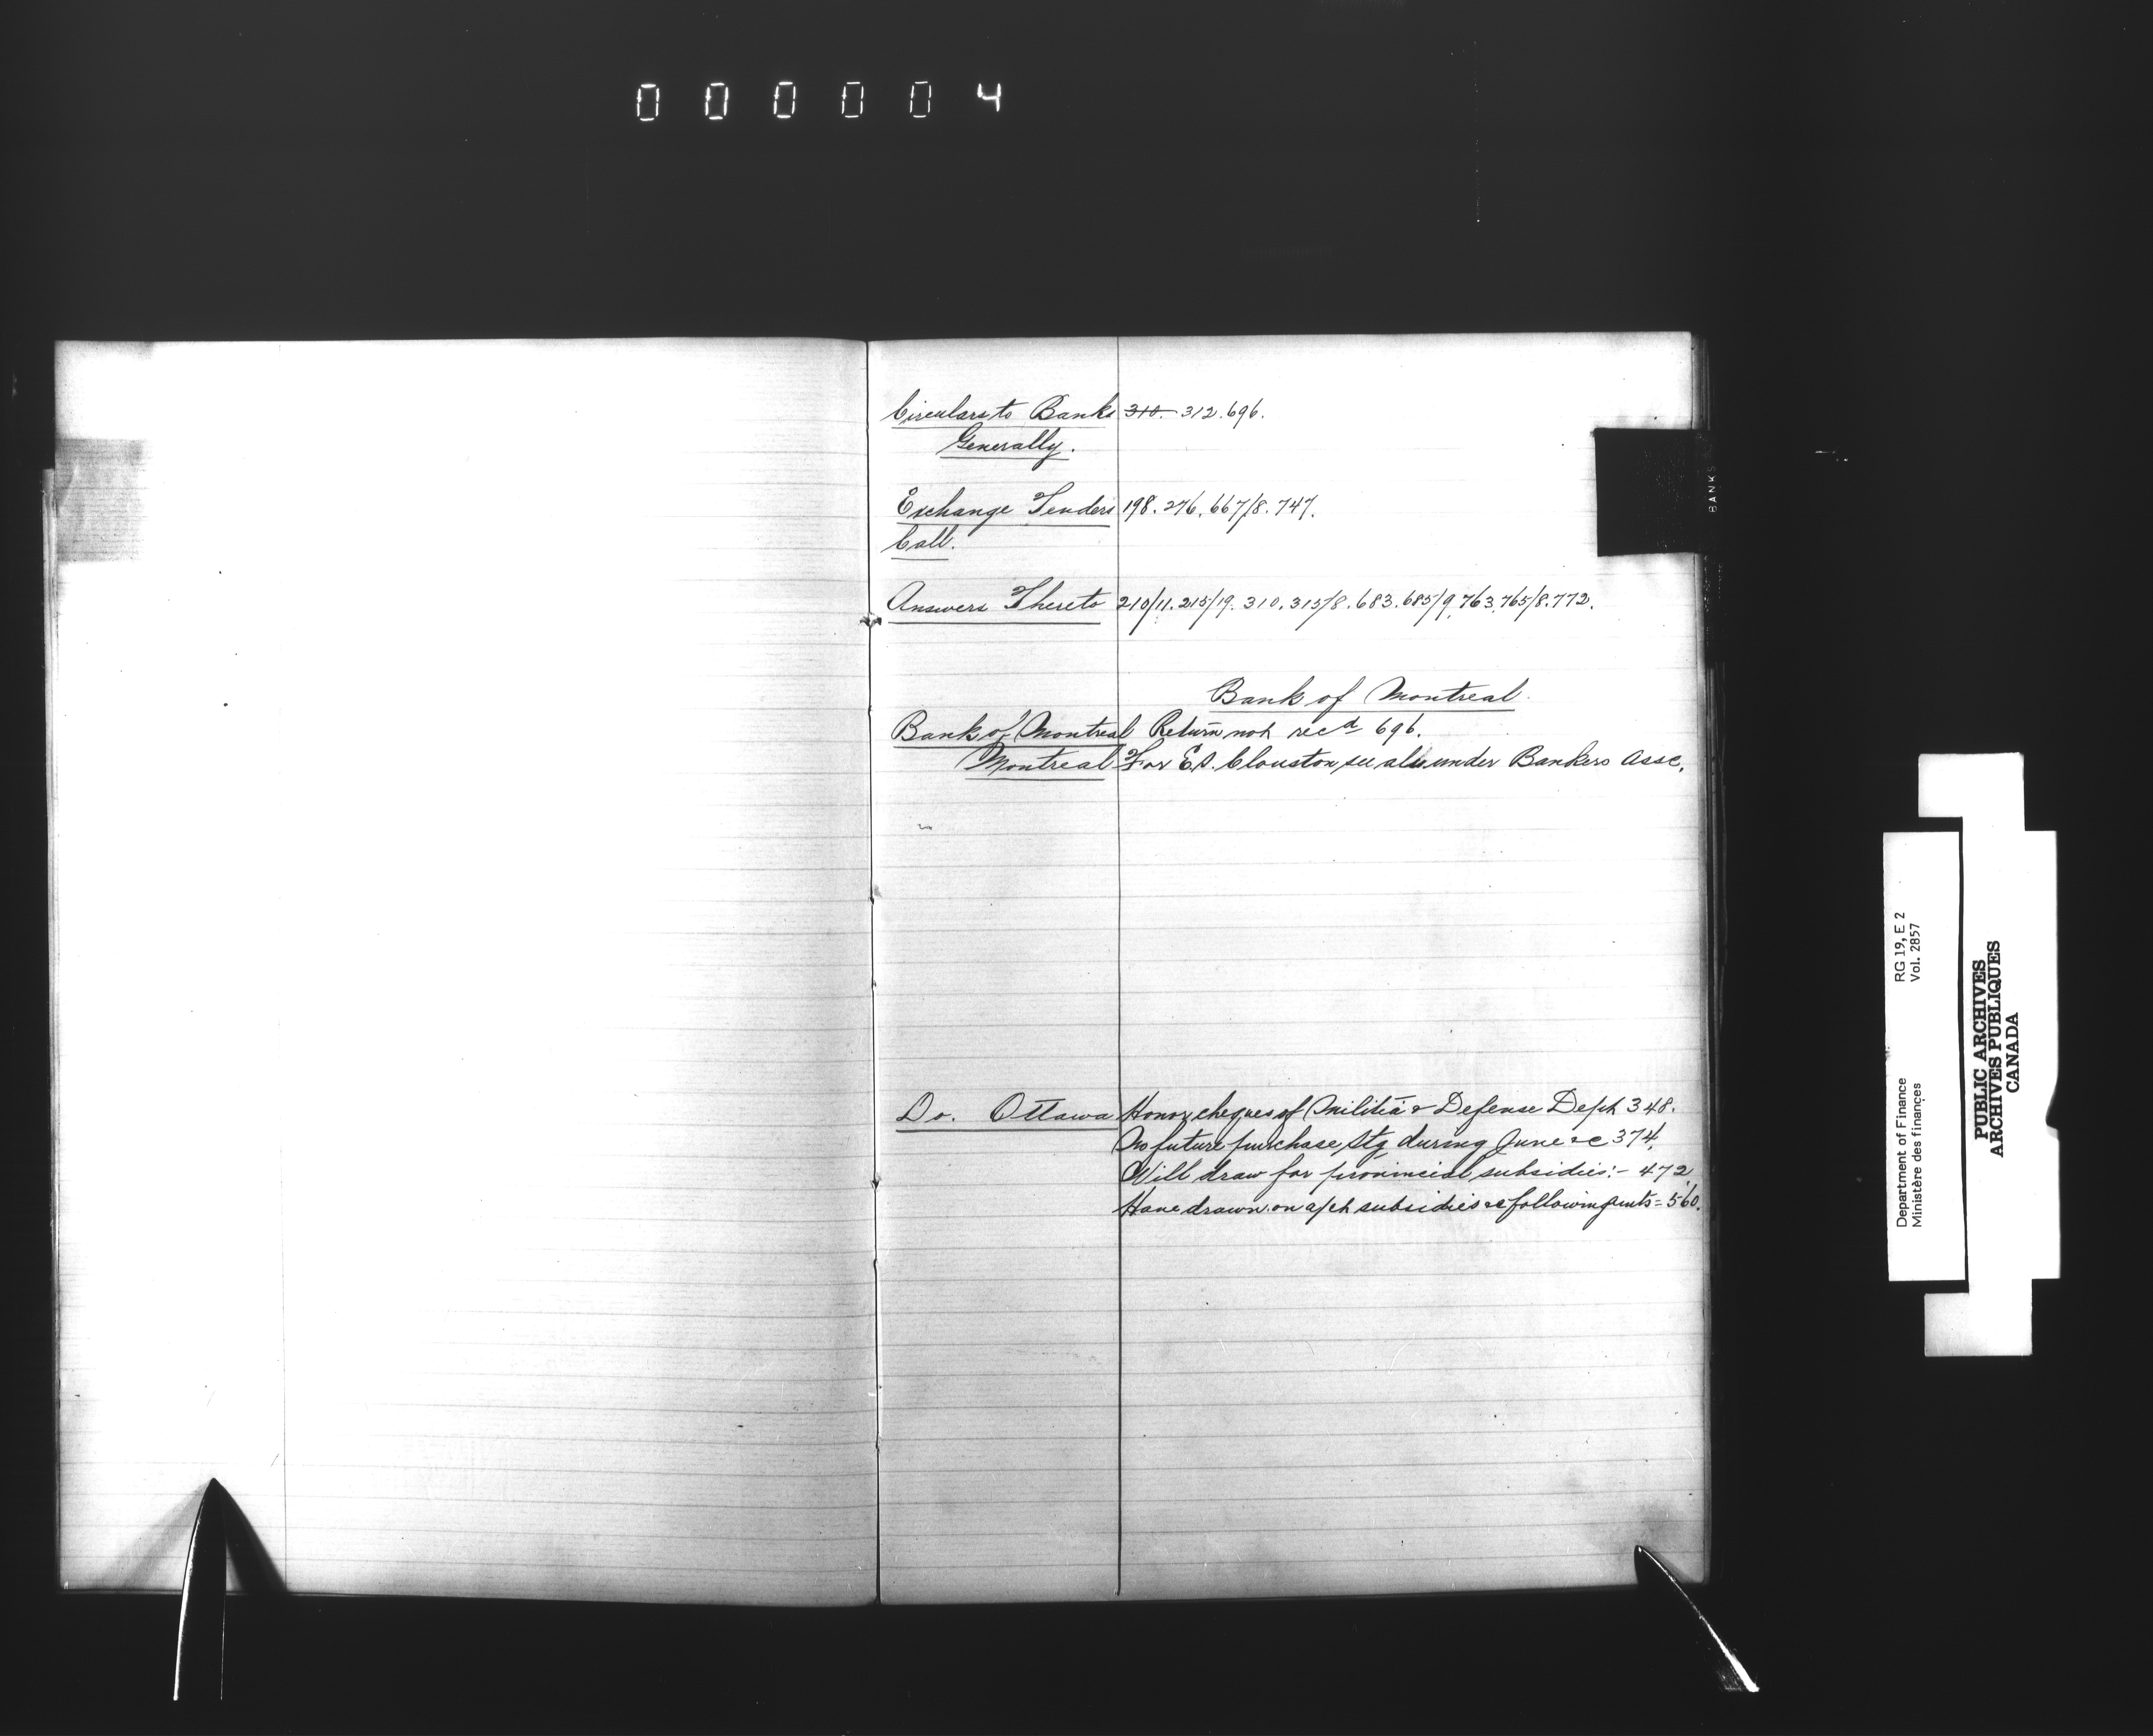 000004
Circulars to Banks 310. 312. 696.
Generally.
Exchange Tenders 198. 276. 667/8. 747.
Call.
Answers Thereto 210/11. 215/19. 310. 315/8. 683. 685/9. 763. 765/8. 772.
Bank of Montreal
Bank of Montreal Return not recd 696.
Montreal For E.S. Clouston see also under Bankers Assc.
Do. Ottawa Honor cheques of Militia & Defense Dept 348.
No future purchase Stg during June &c 374.
Will draw for provincial subsidies:- 472
Have drawn on a/ct subsidies &c following amts = 560.
BANKS
Department of Finance RG 19, E 2
Ministère des finances Vol. 2857
PUBLIC ARCHIVES
ARCHIVES PUBLIQUES
CANADA